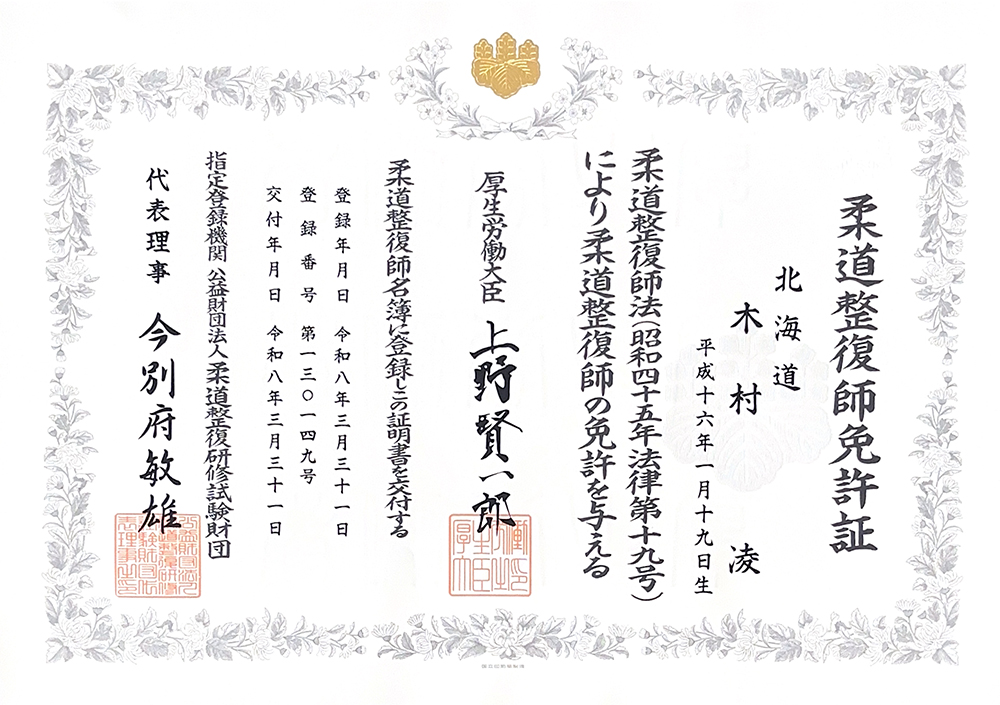 柔道整復師免許証
北海道
木村 凌
平成十六年一月十九日生
柔道整復師法(昭和四十五年法律第十九号)
により柔道整復師の免許を与える
厚生労働大臣 上野賢一郎
柔道整復師名簿に登録しこの証明書を交付する
登録年月日 令和八年三月三十一日
登録番号 第一三〇一四九号
交付年月日 令和八年三月三十一日
指定登録機関 公益財団法人 柔道整復研修試験財団
代表理事 今別府敏雄